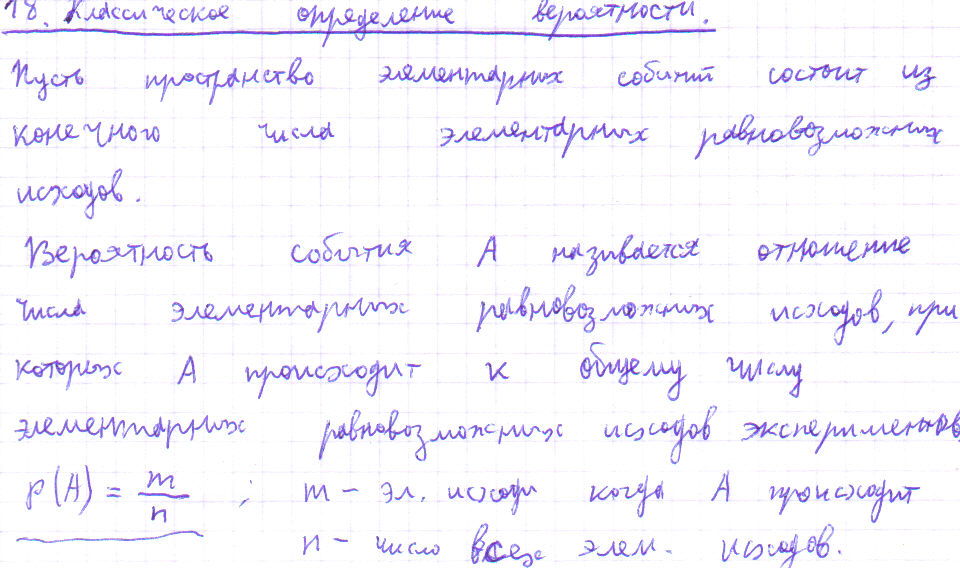 18. Классическое определение вероятности.
Пусть пространство элементарных событий состоит из
конечного числа элементарных равновозможных
исходов.
Вероятность события А называется отношение
числа элементарных равновозможных исходов, при
которых А происходит к общему числу
элементарных равновозможных исходов экспериментов
p(A) = m/n ; m – эл. исходы когда А происходит
n – число всех элем. исходов.